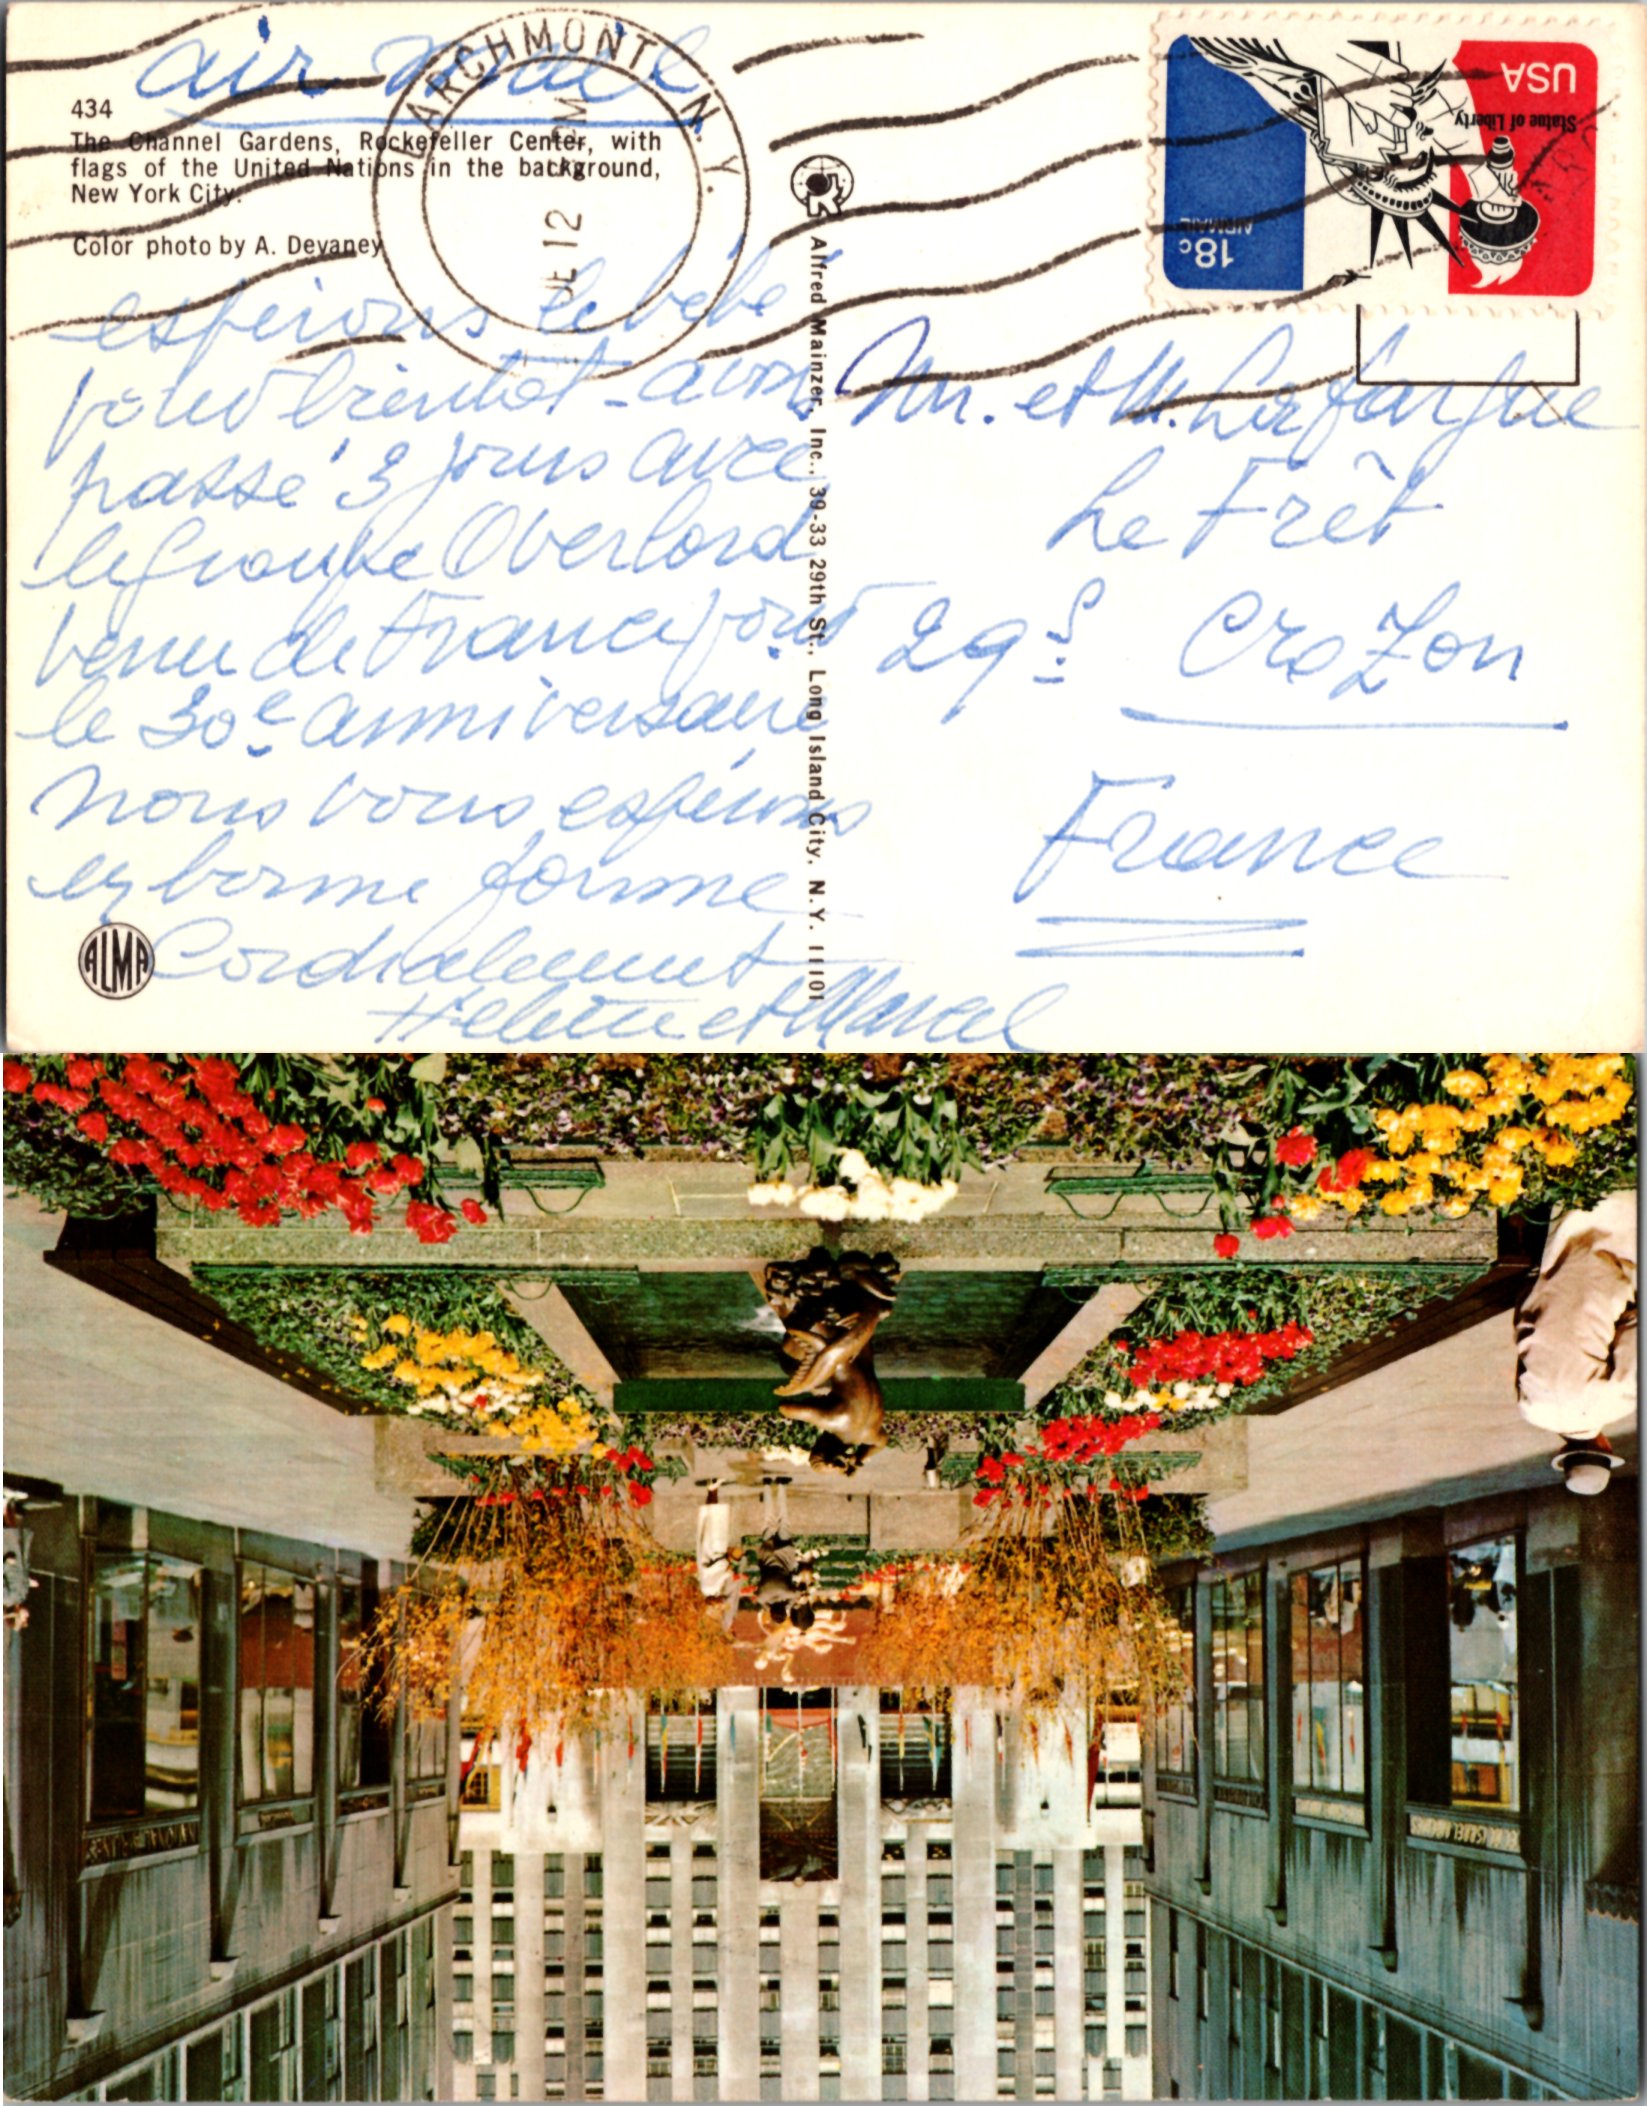 air mail
434
The Channel Gardens, Rockefeller Center, with
flags of the United Nations in the background,
New York City.
Color photo by A. Devaney
LARCHMONT N.Y.
12
USA
Statue of Liberty
18c
AIRMAIL
Alfred Mainzer, Inc., 39-33 29th St., Long Island City, N.Y. 11101
espérons le bébé
pour bientôt - avons
passé 3 jours avec
le groupe Overlord
venu de France pour
le 30e anniversaire
Nous vous espérons
en bonne forme
Cordialement
Hélène et Marcel
ALMA
M. et M. Lafargue
Le Frêt
29 S Crozon
France